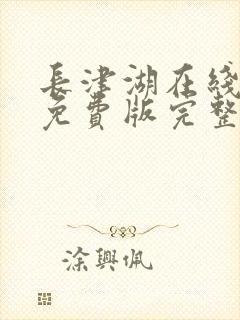 長津湖在綫
免費版完整
涂興佩